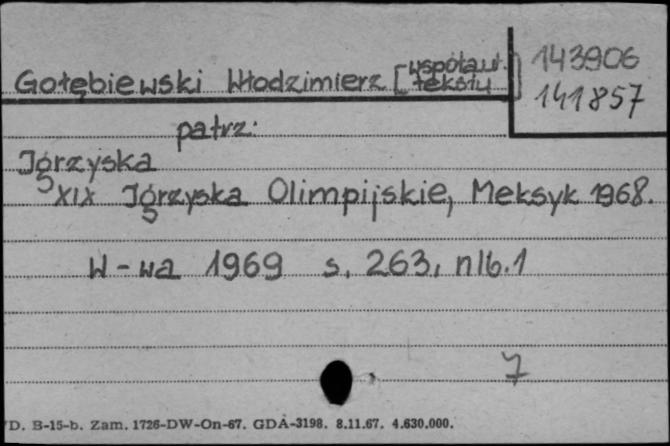 143906
141857
Gołębiewski Włodzimierz [współaut. tekstu]
patrz:
Igrzyska
XIX Igrzyska Olimpijskie, Meksyk 1968.
W-wa 1969 s. 263, nlb. 1
7
D. B-15-b. Zam. 1726-DW-On-67. GDA-3198. 8.11.67. 4.630.000.